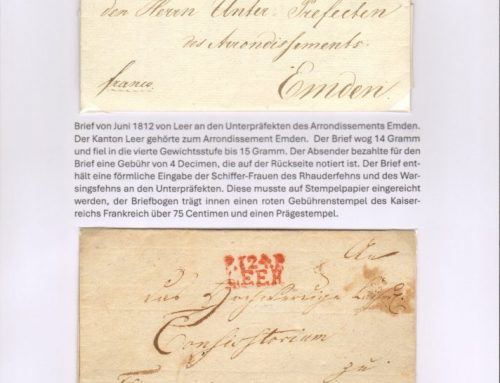 den Herrn Unter-Prefecten
des Arrondissements
franco
Emden.
Brief von Juni 1812 von Leer an den Unterpräfekten des Arrondissements Emden.
Der Kanton Leer gehörte zum Arrondissement Emden. Der Brief wog 14 Gramm
und fiel in die vierte Gewichtsstufe bis 15 Gramm. Der Absender bezahlte für den
Brief eine Gebühr von 4 Decimen, die auf der Rückseite notiert ist. Der Brief ent-
hält eine förmliche Eingabe der Schiffer-Frauen des Rhauderfehns und des War-
singsfehns an den Unterpräfekten. Diese musste auf Stempelpapier eingereicht
werden, der Briefbogen trägt innen einen roten Gebührenstempel des Kaiser-
reichs Frankreich über 75 Centimen und einen Prägestempel.
LEER
An
Consistorium
zu